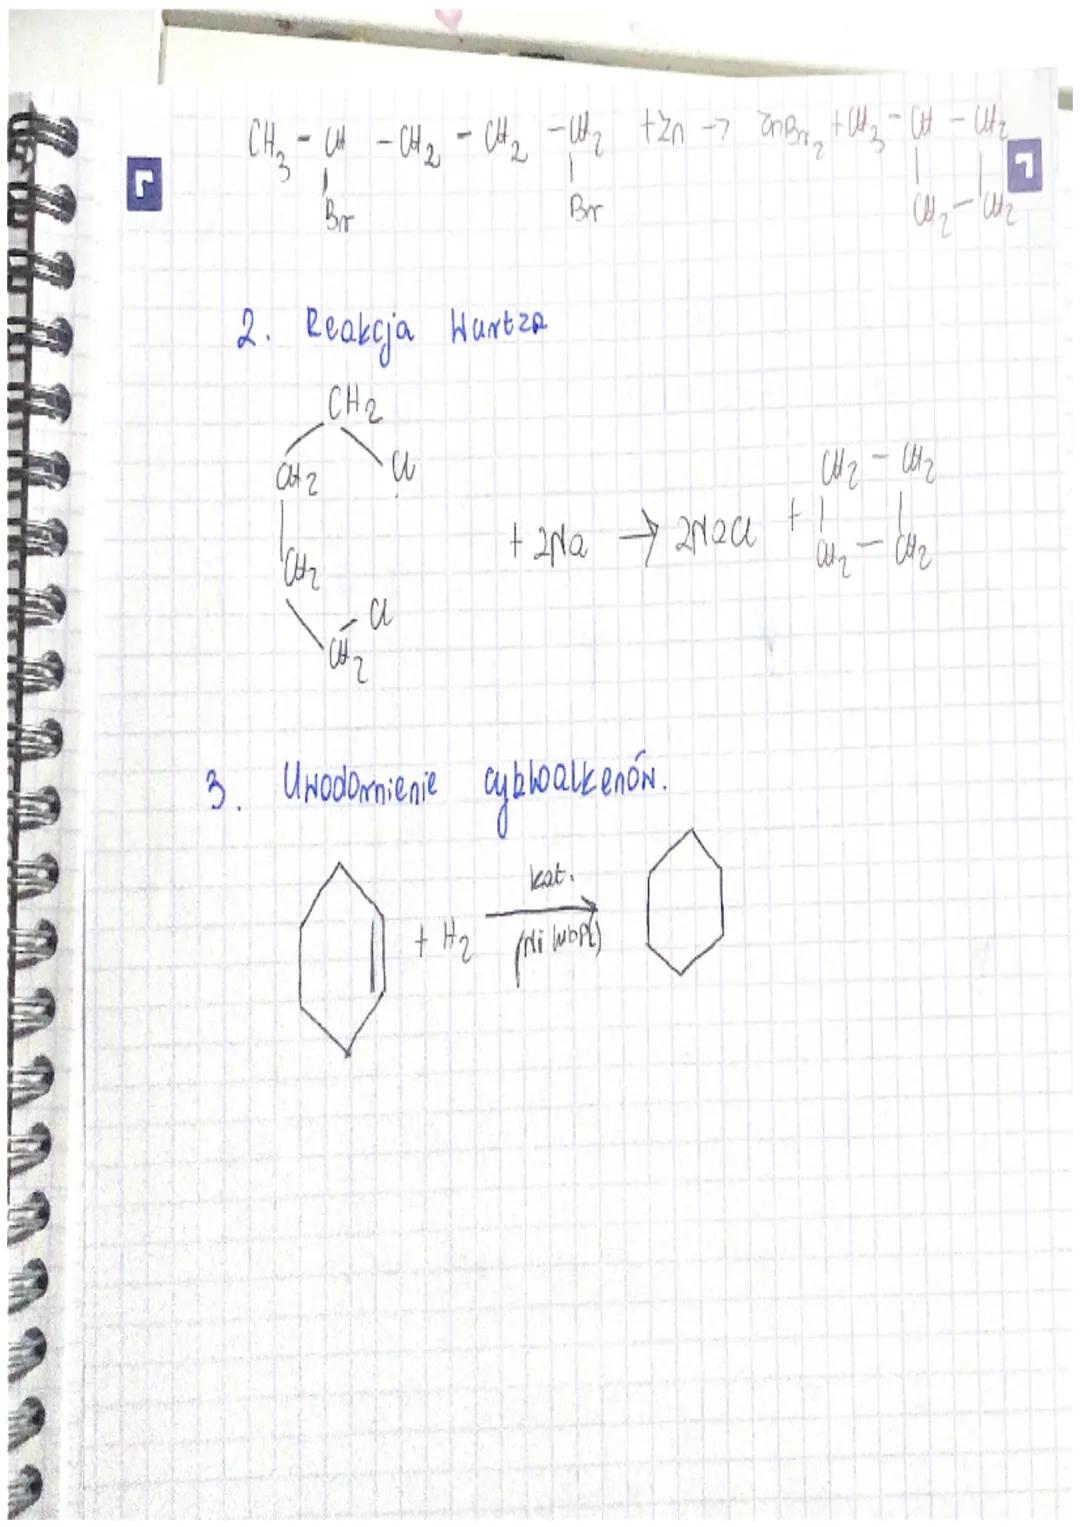 CH3 - CH - CH2 - CH2 - CH2 + Zn → ZnBr2 + CH3 - CH - CH2
Br Br CH2 - CH2
2. Reakcja Wurtza
CH2
CH2 Cl
CH2 - CH2
+ 2Na → 2NaCl +
CH2 CH2 - CH2
Cl
CH2
3. Uwodornienie cykloalkenów.
kat.
+ H2
(Ni lub Pt)